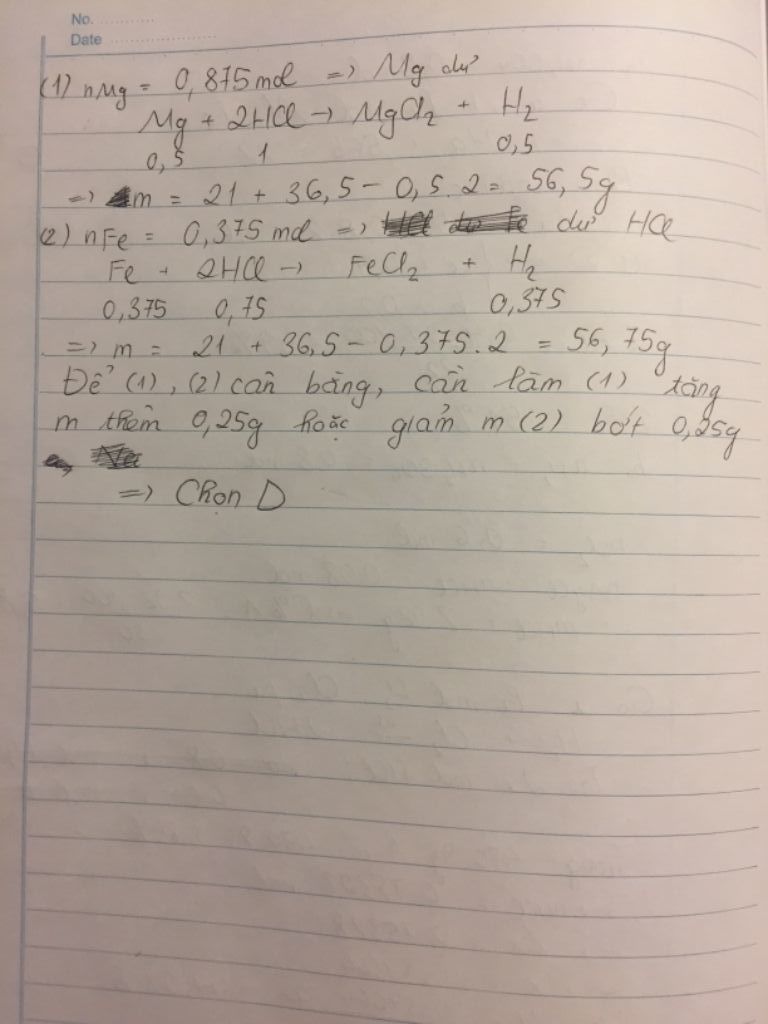 No. ............
Date ........................
(1) nMg = 0,875 mol => Mg dư
Mg + 2HCl → MgCl2 + H2
0,5 1 0,5
=> m = 21 + 36,5 - 0,5.2 = 56,5g
(2) nFe = 0,375 mol => dư HCl
Fe + 2HCl → FeCl2 + H2
0,375 0,75 0,375
=> m = 21 + 36,5 - 0,375.2 = 56,75g
Để (1), (2) cân bằng, cần làm (1) tăng
m thêm 0,25g hoặc giảm m (2) bớt 0,25g
=> Chọn D